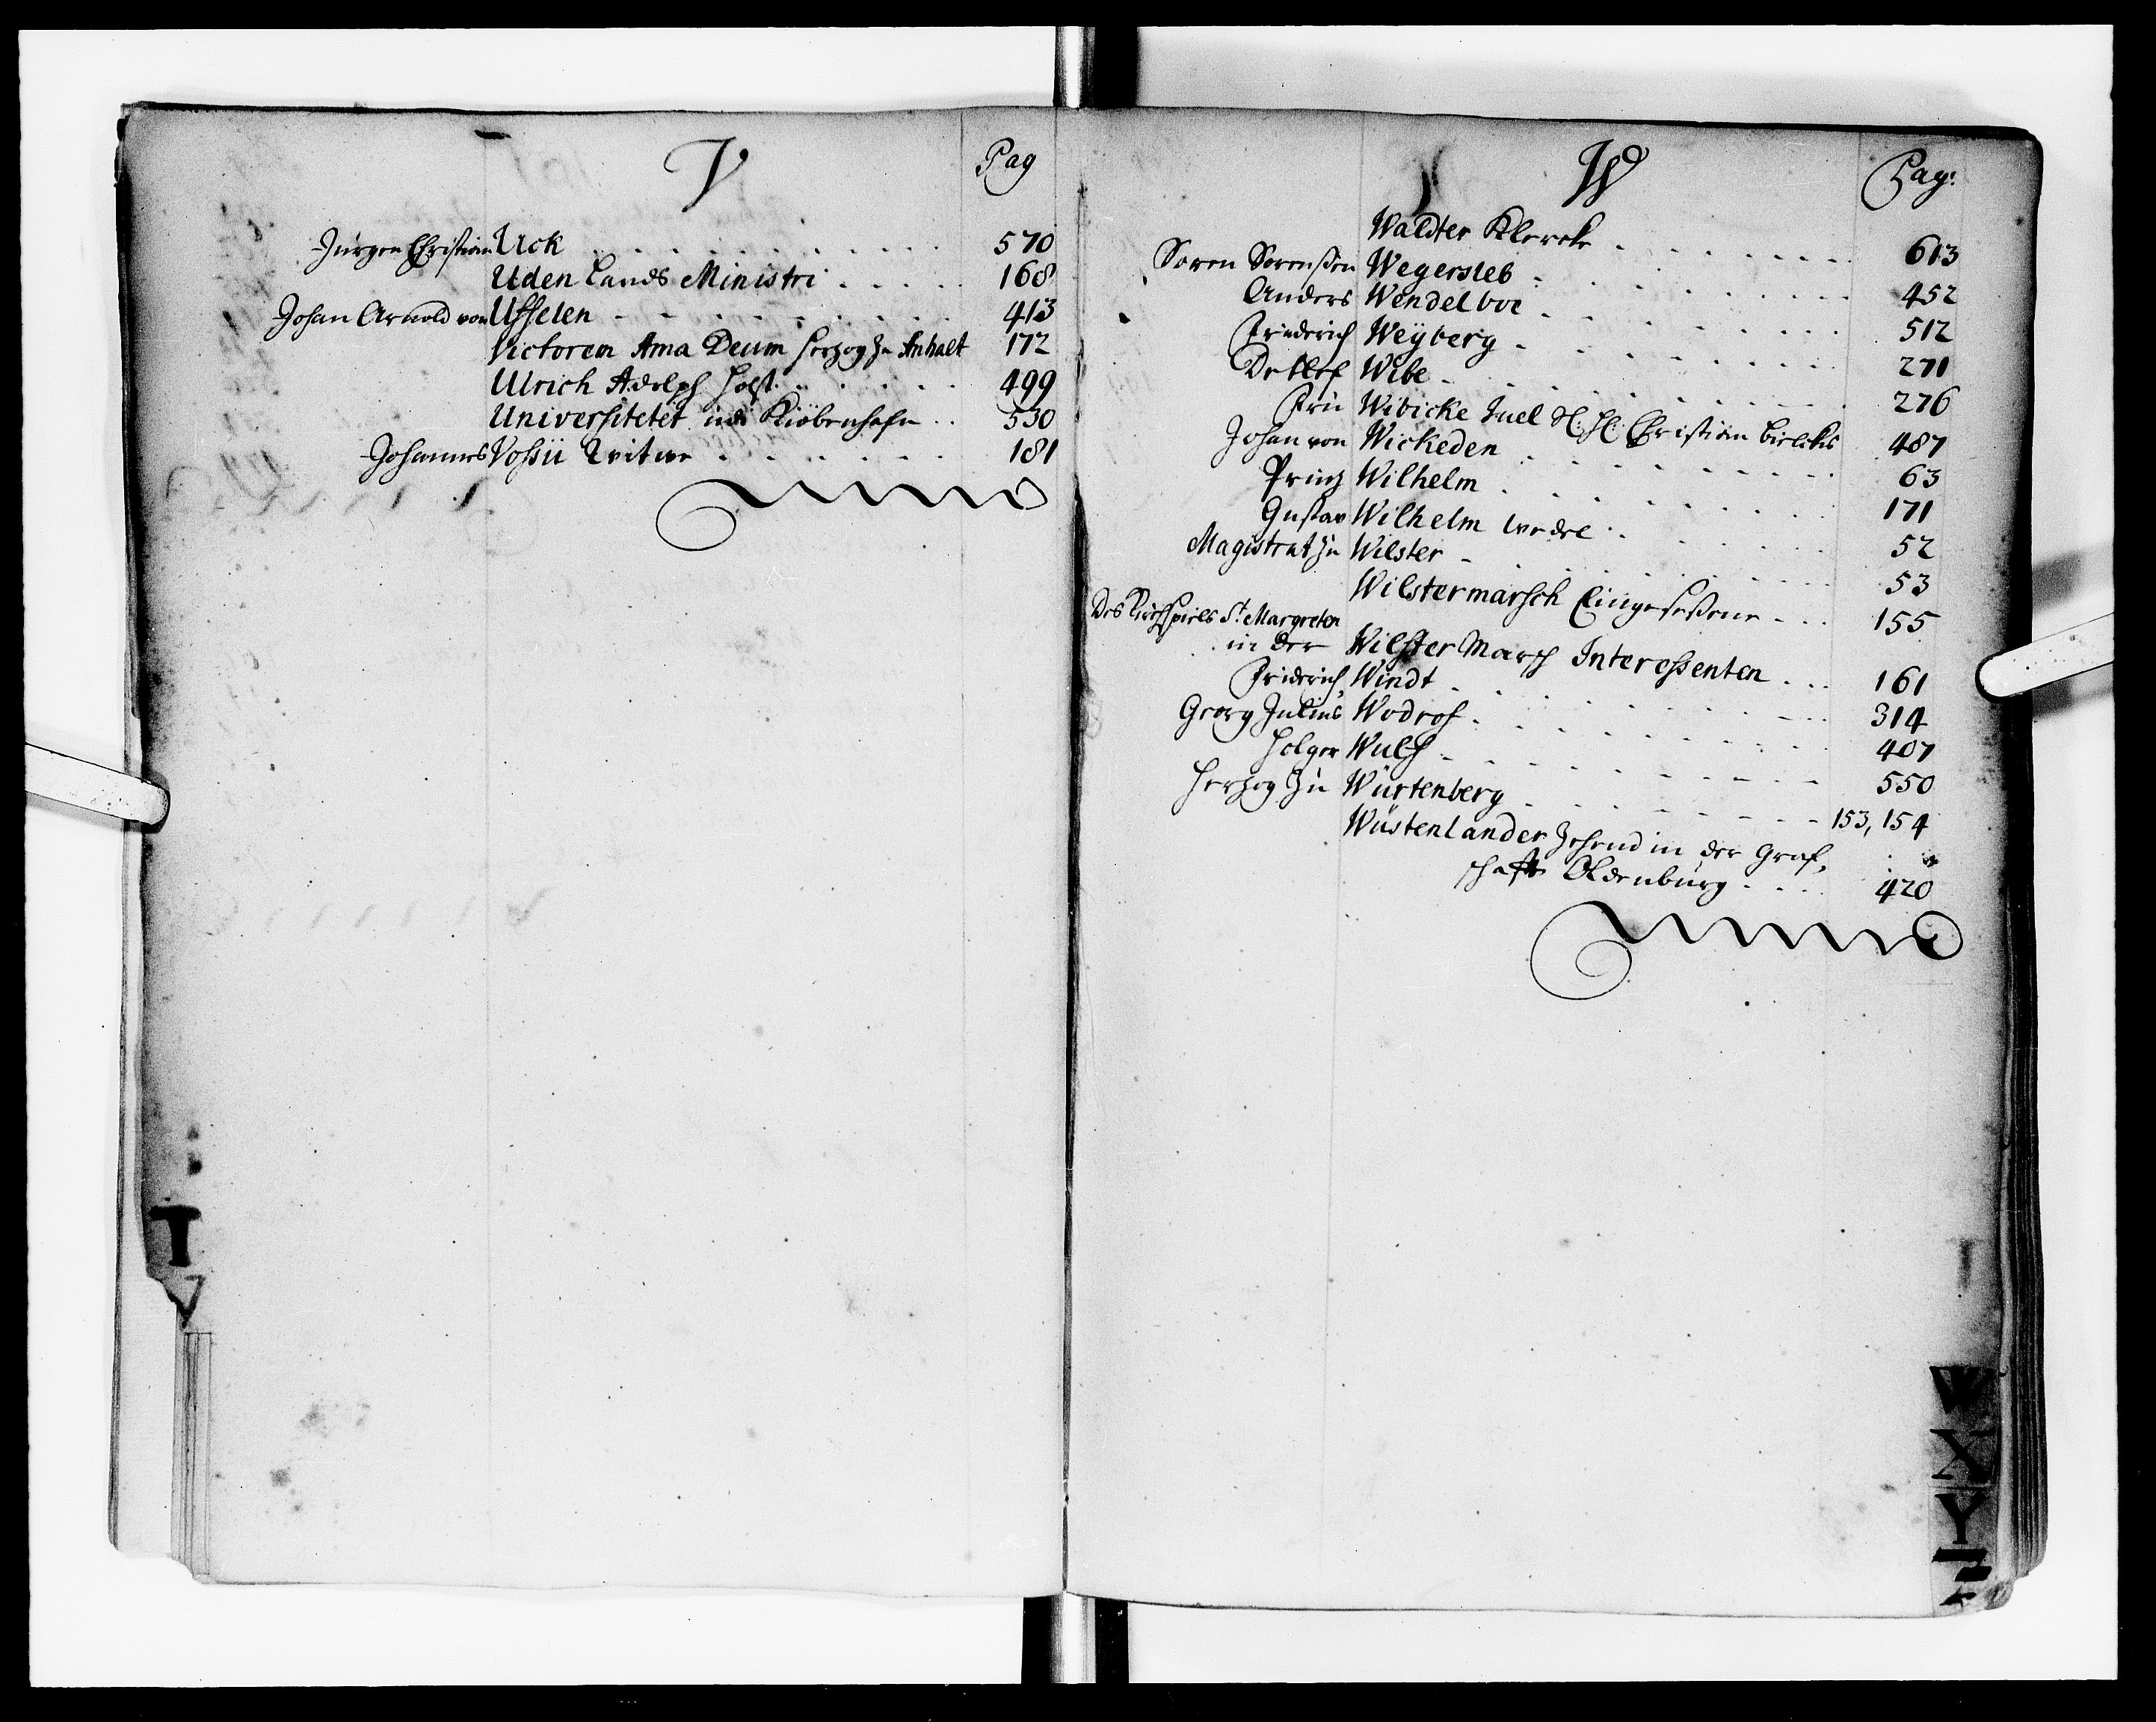 V
Pag
Jürgen Christian Uck 570
Uden Lands Ministri 168
Johan Arnold von Uffelen 413
Victorem Ama Deum Herzog zu Anhalt 172
Ulrich Adolph Holst 499
Universitetet udi Kiöbenhafn 530
Johannes Vossii Witwe 181
W
Pag:
Waldter Klercke 613
Soren Sorenßen Wegersleb 452
Anders Wendelboe 512
Friederich Weyberg 271
Detlef Wibe 276
Fru Wibicke Juel Sl. H: Christian bielckes 487
Johan von Wickeden 63
Prinz Wilhelm 171
Gustav Wilhelm Wedel 52
Magistrat zu Wilster 53
Wilstermarsch Eingeseßene 155
Des Kirchspiels St. Margreten
in der Wilster Marsch Interessenten 161
Friderich Windt 314
Georg Julius Wodrof 407
Holger Wulf 550
Herzog zu Würtenberg 153, 154
Wüstenlander Zehend in der Graf,
schafft Oldenburg 420
T
V
W
X
Y
Z